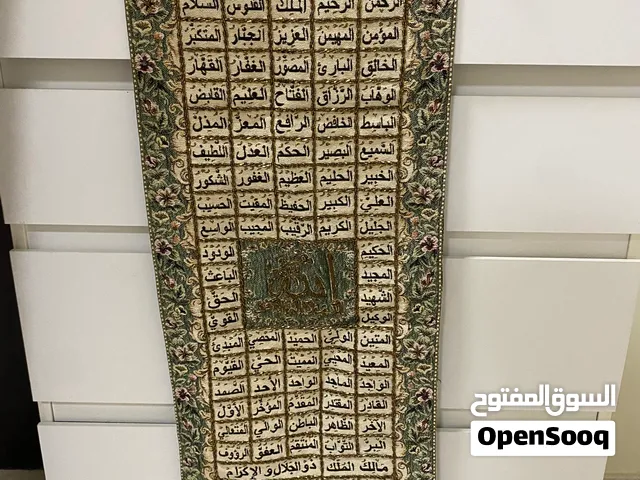 الرحمن الرحيم الملك القدوس السلام
المؤمن المهيمن العزيز الجبار المتكبر
الخالق البارئ المصور الغفار القهار
الوهاب الرزاق الفتاح العليم القابض
الباسط الخافض الرافع المعز المذل
السميع البصير الحكم العدل اللطيف
الخبير الحليم العظيم الغفور الشكور
العلي الكبير الحفيظ المقيت الحسيب
الجليل الكريم الرقيب المجيب الواسع
الحكيم الودود
المجيد الباعث
الشهيد الحق
الوكيل القوي
الله
المتين الولي الحميد المحصي المبدئ
المعيد المحيي المميت الحي القيوم
الواجد الماجد الواحد الأحد الصمد
القادر المقتدر المقدم المؤخر الأول
الآخر الظاهر الباطن الوالي المتعالي
البر التواب المنتقم العفو الرؤوف
مالك الملك ذو الجلال و الإكرام
السوق المفتوح
OpenSooq